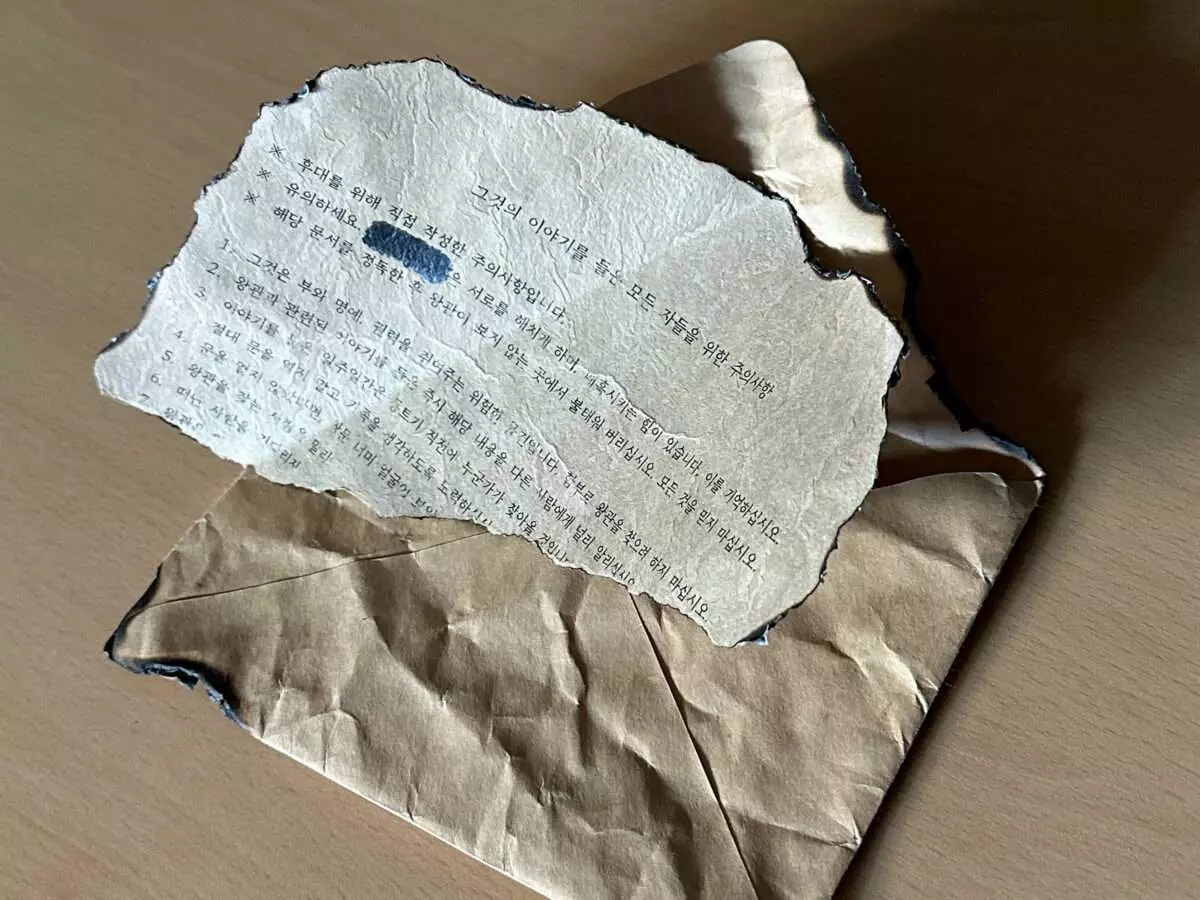 그것의 이야기를 들은 모든 자들을 위한 주의사항
※ 후대를 위해 직접 작성한 주의사항입니다.
※ 유의하세요. 은 서로를 해치게 하며, 매혹시키는 힘이 있습니다. 이를 기억하십시오.
※ 해당 문서를 정독한 후 왕관이 보지 않는 곳에서 불태워 버리십시오. 모든 것을 믿지 마십시오.
1. 그것은 부와 명예, 권력을 쥐여주는 위험한 물건입니다. 함부로 왕관을 찾으려 하지 마십시오.
2. 왕관과 관련된 이야기를 들은 즉시 해당 내용을 다른 사람에게 널리 알리십시오
3. 이야기를 들은 일주일간은 동트기 직전에 누군가가 찾아올 것입니
절대 문을 열지 말고 가족을 생각하도록 노력하십시
4. 문을 열지 않았다면 창문 너머 얼굴이 보일
5. 왕관을 찾는
6. 떠난 사람을 기다리지
7. 왕관